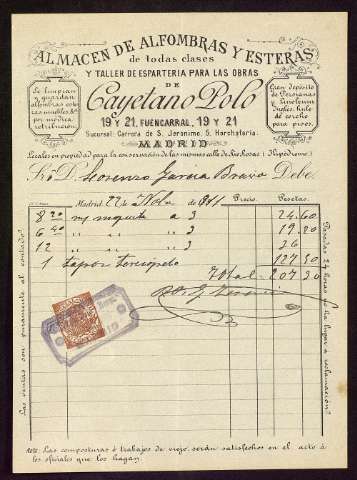 ALMACEN DE ALFOMBRAS Y ESTERAS
de todas clases
Y TALLER DE ESPARTERIA PARA LAS OBRAS
DE
Cayetano Polo
19 Y 21, FUENCARRAL, 19 Y 21
Sucursal: Carrera de S. Jeronimo, 5, Horchateria.
MADRID
Se limpian
y guardan
alfombras este-
ras muebles &ª
por módica
retribucion.
Gran deposito
de Persianas
y Linoleum
Ingles, hule
de corcho
para pisos.
Locales en propiedad para la conservacion de las mismas calle de Rio Rosas (Hipódromo)
Sr. D. Lorenzo Garcia Bravo Debe
Madrid 22 de de Precio. Pesetas.
8 20 m moqueta a 3 24.60
6 40 " " " 3 19.20
12 " " 3 36
1 tapor terciopelo 127.50
Total 207 30
Las ventas son puramente al contado.
Pasadas 24 horas no ha lugar a reclamacion.
NOTA: Las composturas ó trabajos de viejo serán satisfechos en el acto á
los oficiales que los hagan.